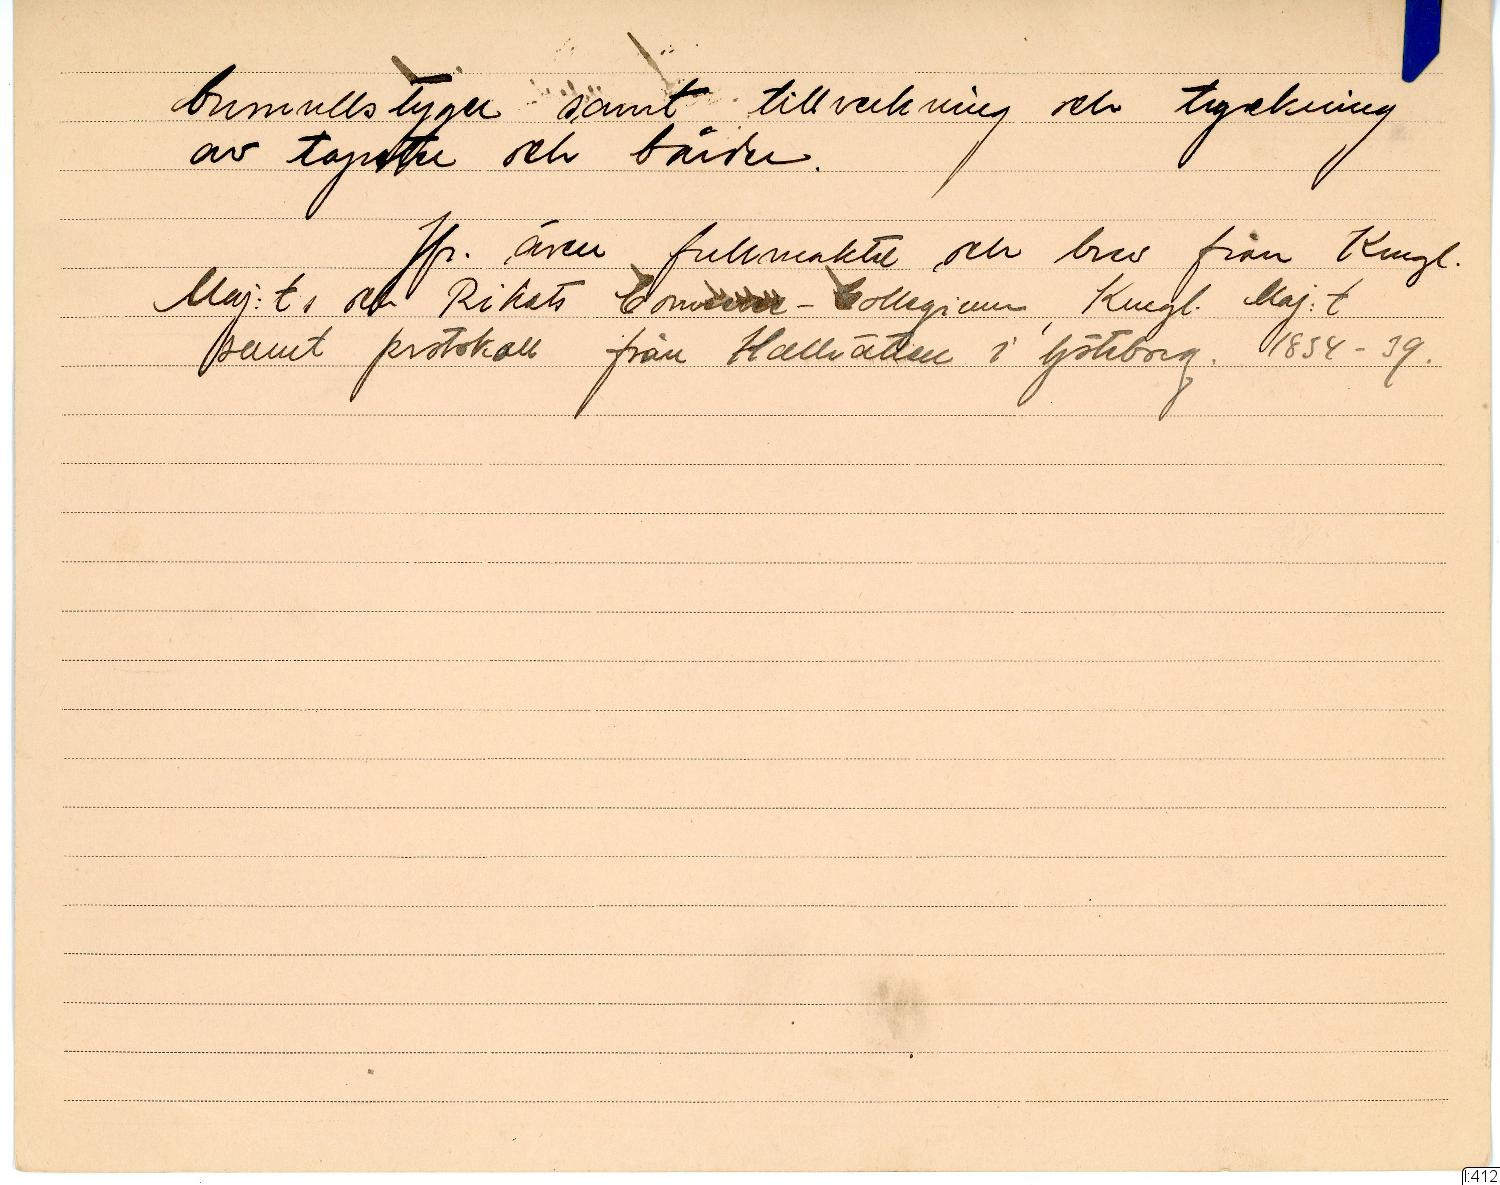 bomullstyger samt tillverkning och tryckning
av tapeter och bårder.
Jfr. även fullmakter och brev från Kungl.
Maj:ts och Rikets Commerce-Collegium, Kungl. Maj:t
samt protokoll från Hallrätten i Göteborg. 1834-39.
1:412